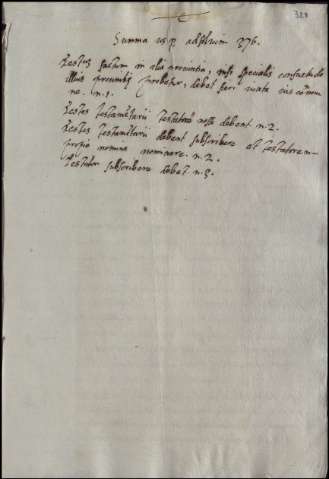 Summa usq adfolium 276.
Testus factum in alia provintia, nisi specialis consuetudo
illius provintiæ probetur, debet fieri iuxta ius comu
ne. n. 1.
Testes testamẽtarii testatorẽ nosse debent n. 2.
Testes testamẽtarii debent subscribere et testatorem
proprio nomine nominare. n. 2.
Testator subscribere debet n. 3.